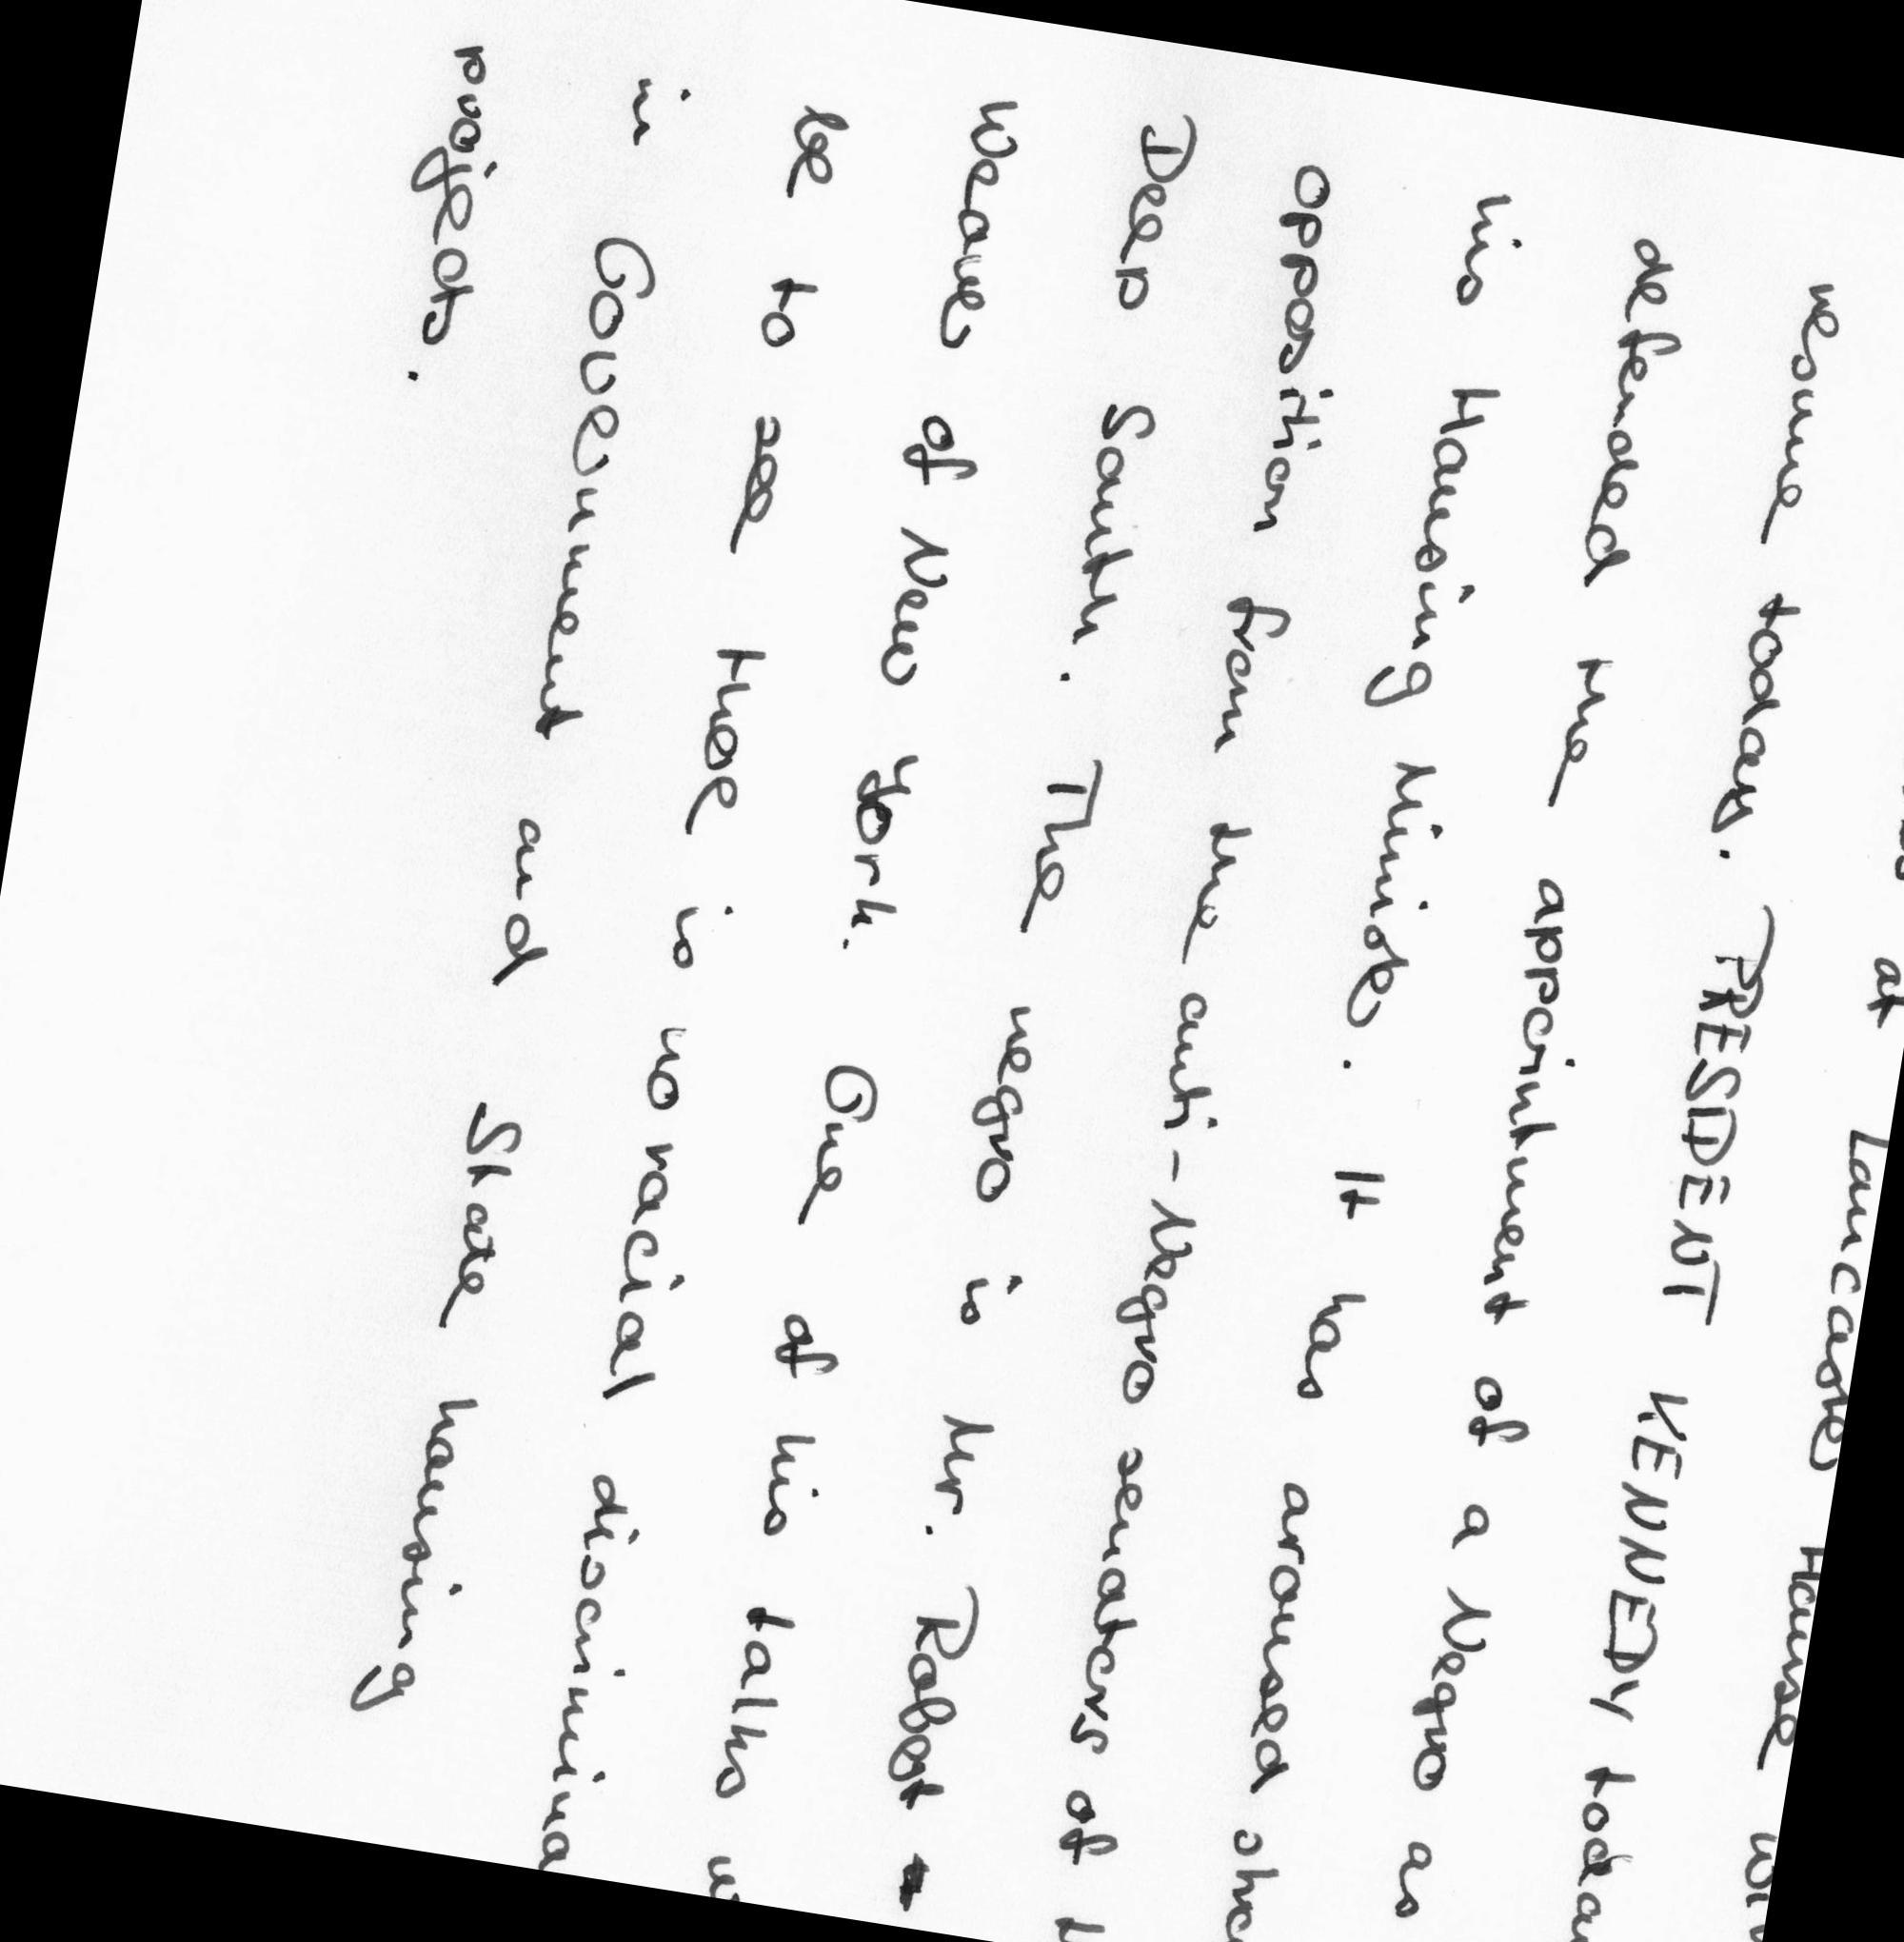 at Lancaster House wil
resume today. PRESIDENT KENNEDY toda
defended the appointment of a Negro as
his Housing Minister. It has aroused stro
opposition from the anti-Negro senators of t
Deep South. The negro is Mr. Robert
Weaver of New York. One of his talks w
be to see there is no racial discrimina
in Government and State housing
projects.